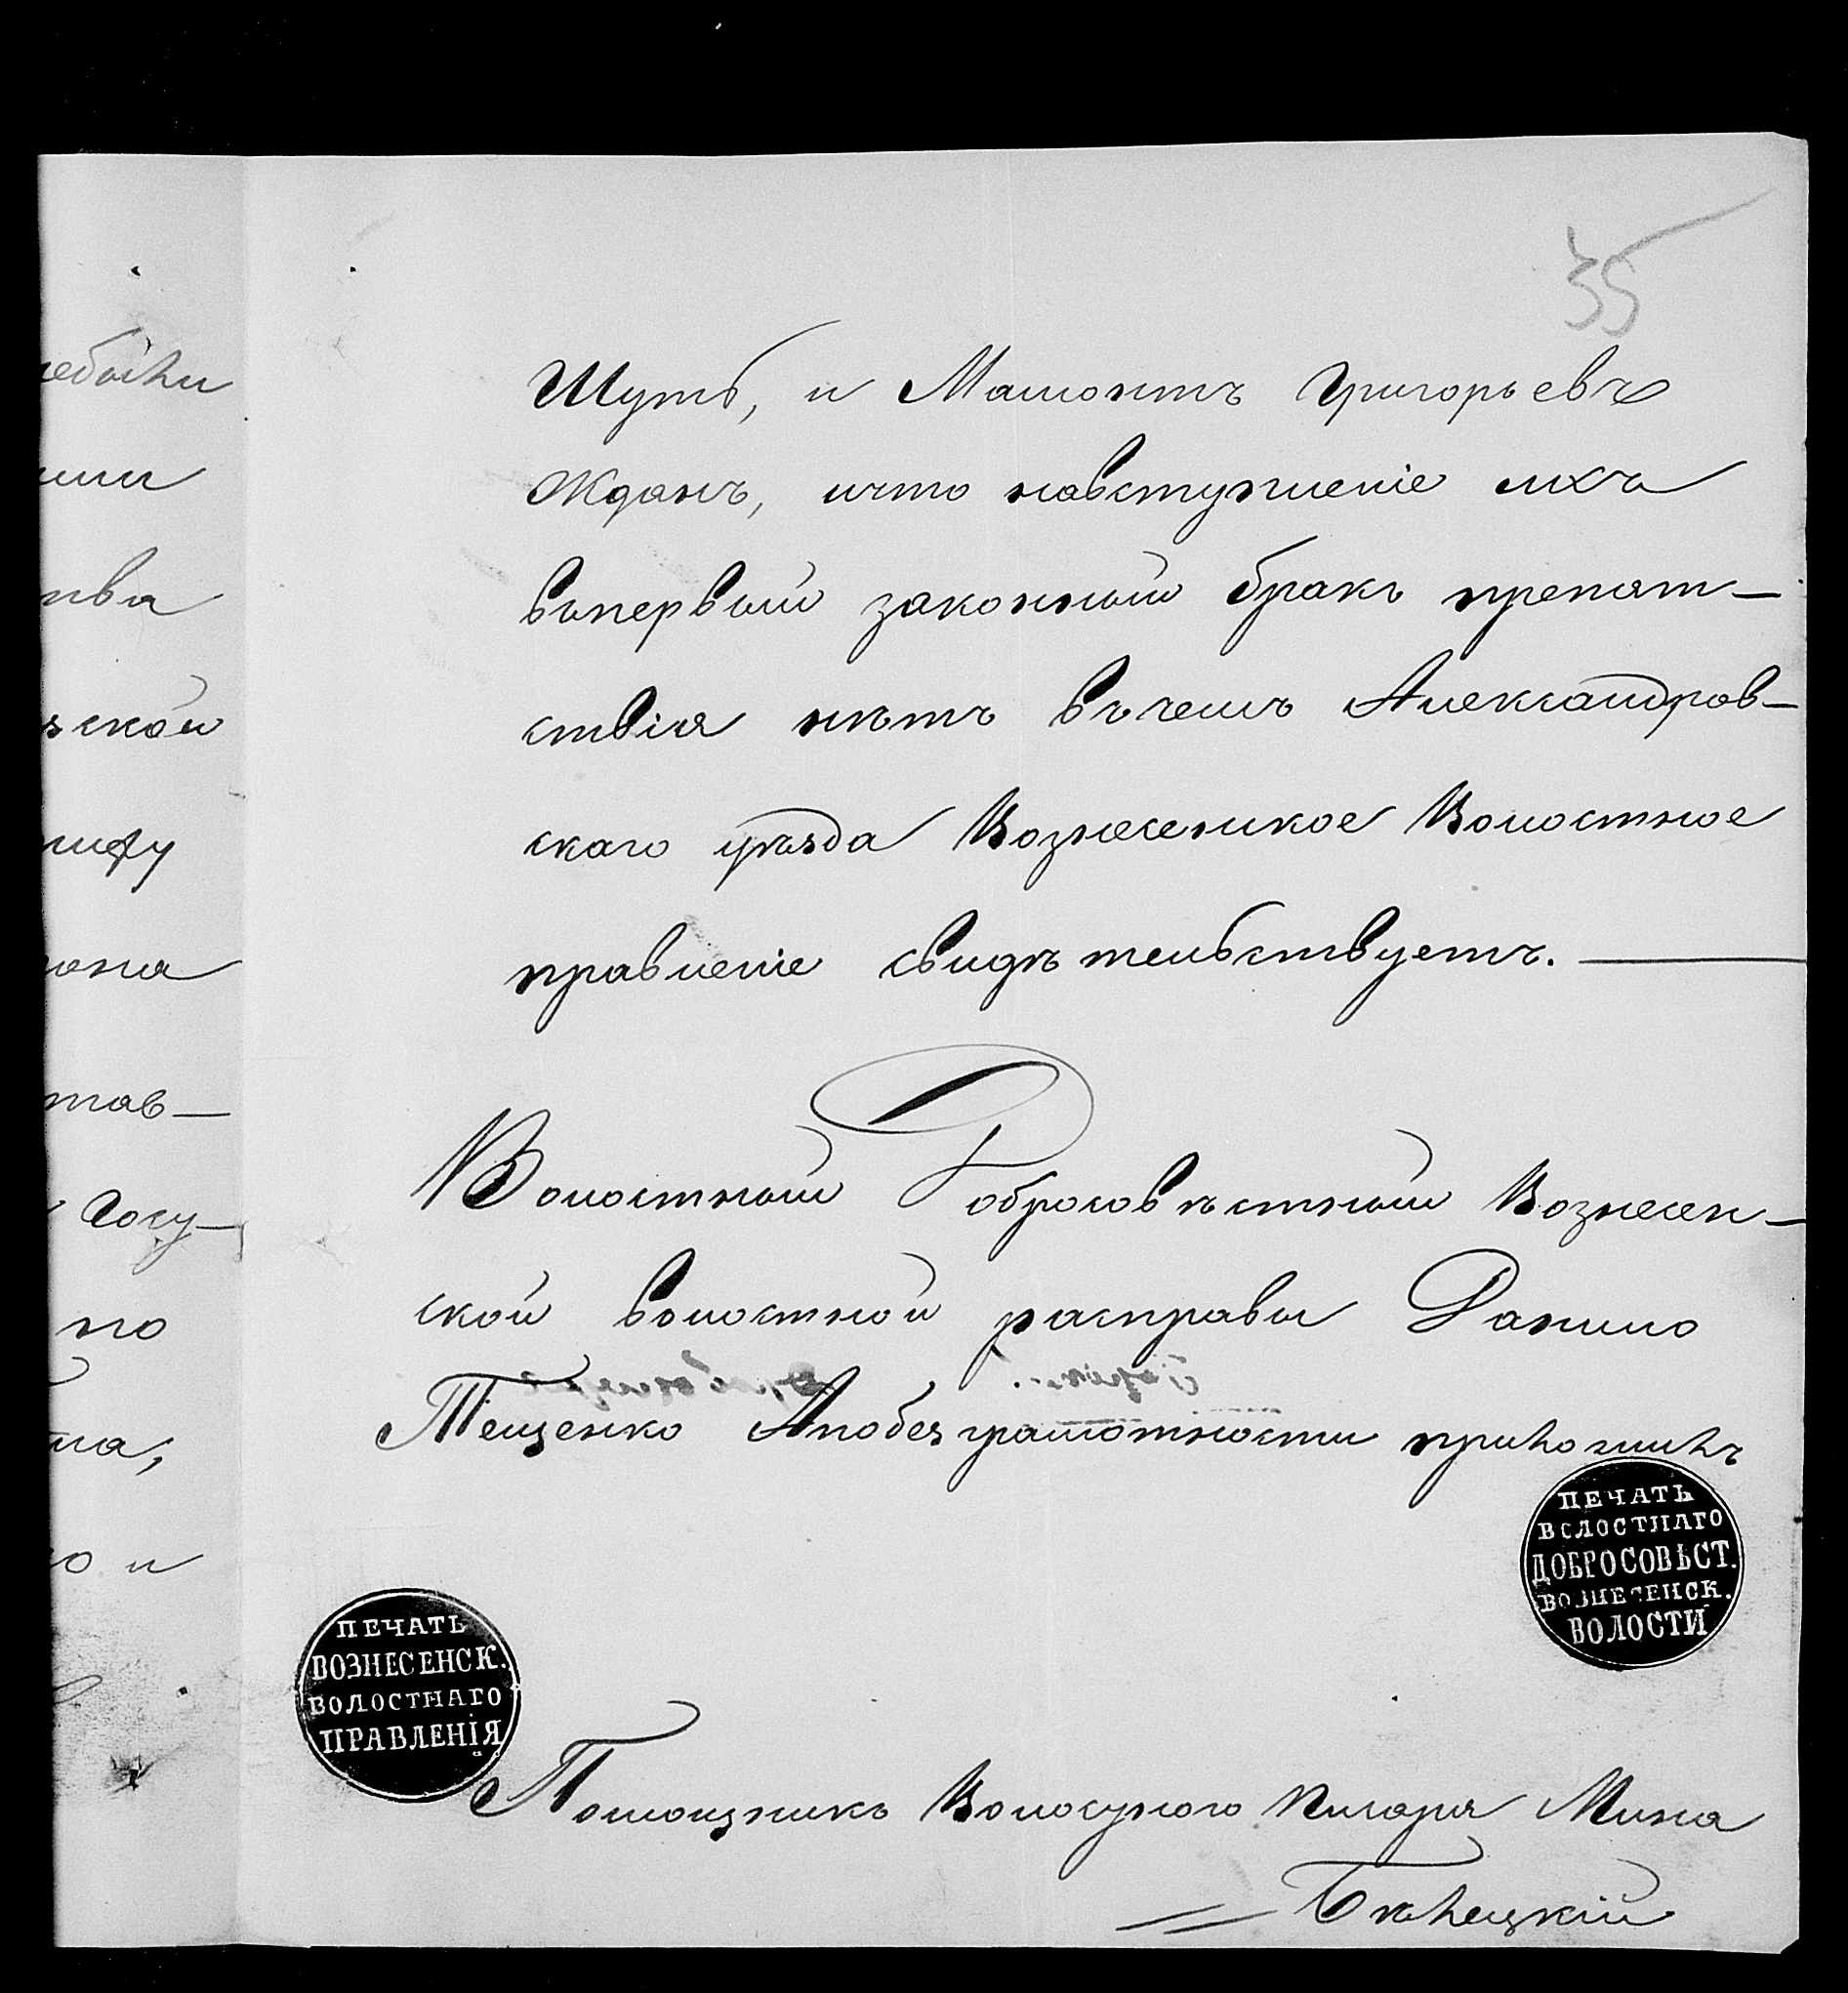 35
ебоьки
ими
тва
ской
она
тав—
Госу—
по
ла,
о и
Шуть, и Мамонтъ Григорьевъ
Жданъ, ичто навступленіе ихъ
въпервый законный бракъ препят—
ствія нѣтъ въчемъ Александров—
скаго уѣзда Вознесенское Волостное
правленіе свидѣтельствуетъ. —
Волостный Добросовѣстный Вознесен—
ской волостной расправы Данило
Тещенко Апобезграмотности приложилъ
ПЕЧАТЬ
ВОЛОСТНАГО
ДОБРОСОВѢСТ.
ВОЗНЕСЕНСК.
ВОЛОСТИ
ПЕЧАТЬ
ВОЗНЕСЕНСК.
ВОЛОСТНАГО
ПРАВЛЕНІЯ
Помощникъ Волосного Писаря Мина